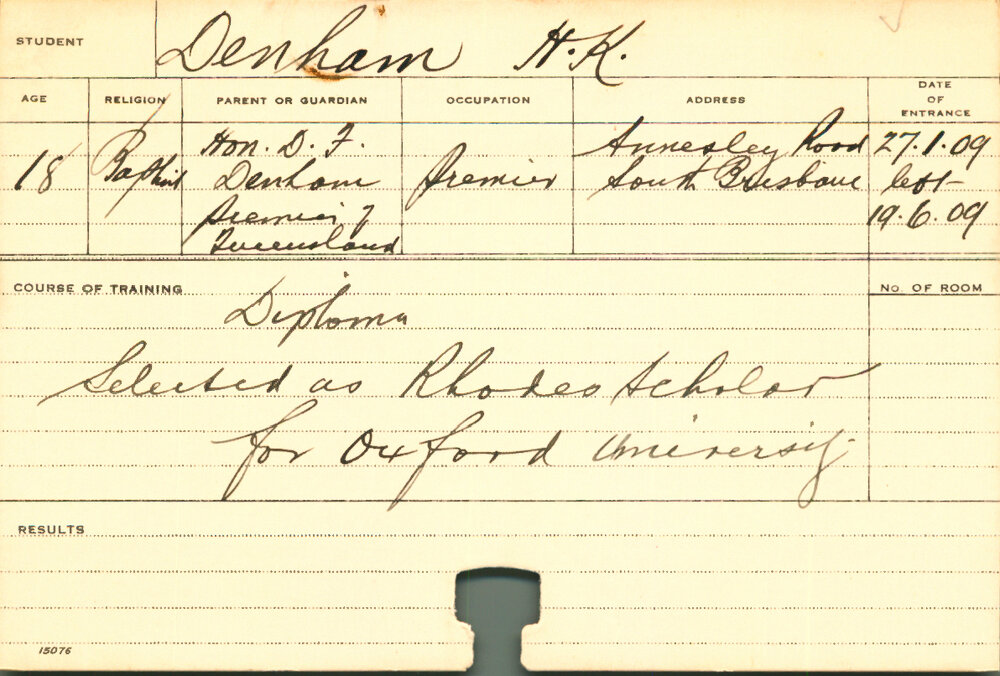 STUDENT Denham H.K.
AGE RELIGION PARENT OR GUARDIAN OCCUPATION ADDRESS DATE OF ENTRANCE
18 Baptist Hon. D. F. Denham Premier of Queensland Premier Annesley Road South Brisbane 27.1.09 left 19.6.09
COURSE OF TRAINING No. OF ROOM
Diploma
Selected as Rhodes Scholar
for Oxford University
RESULTS
15076